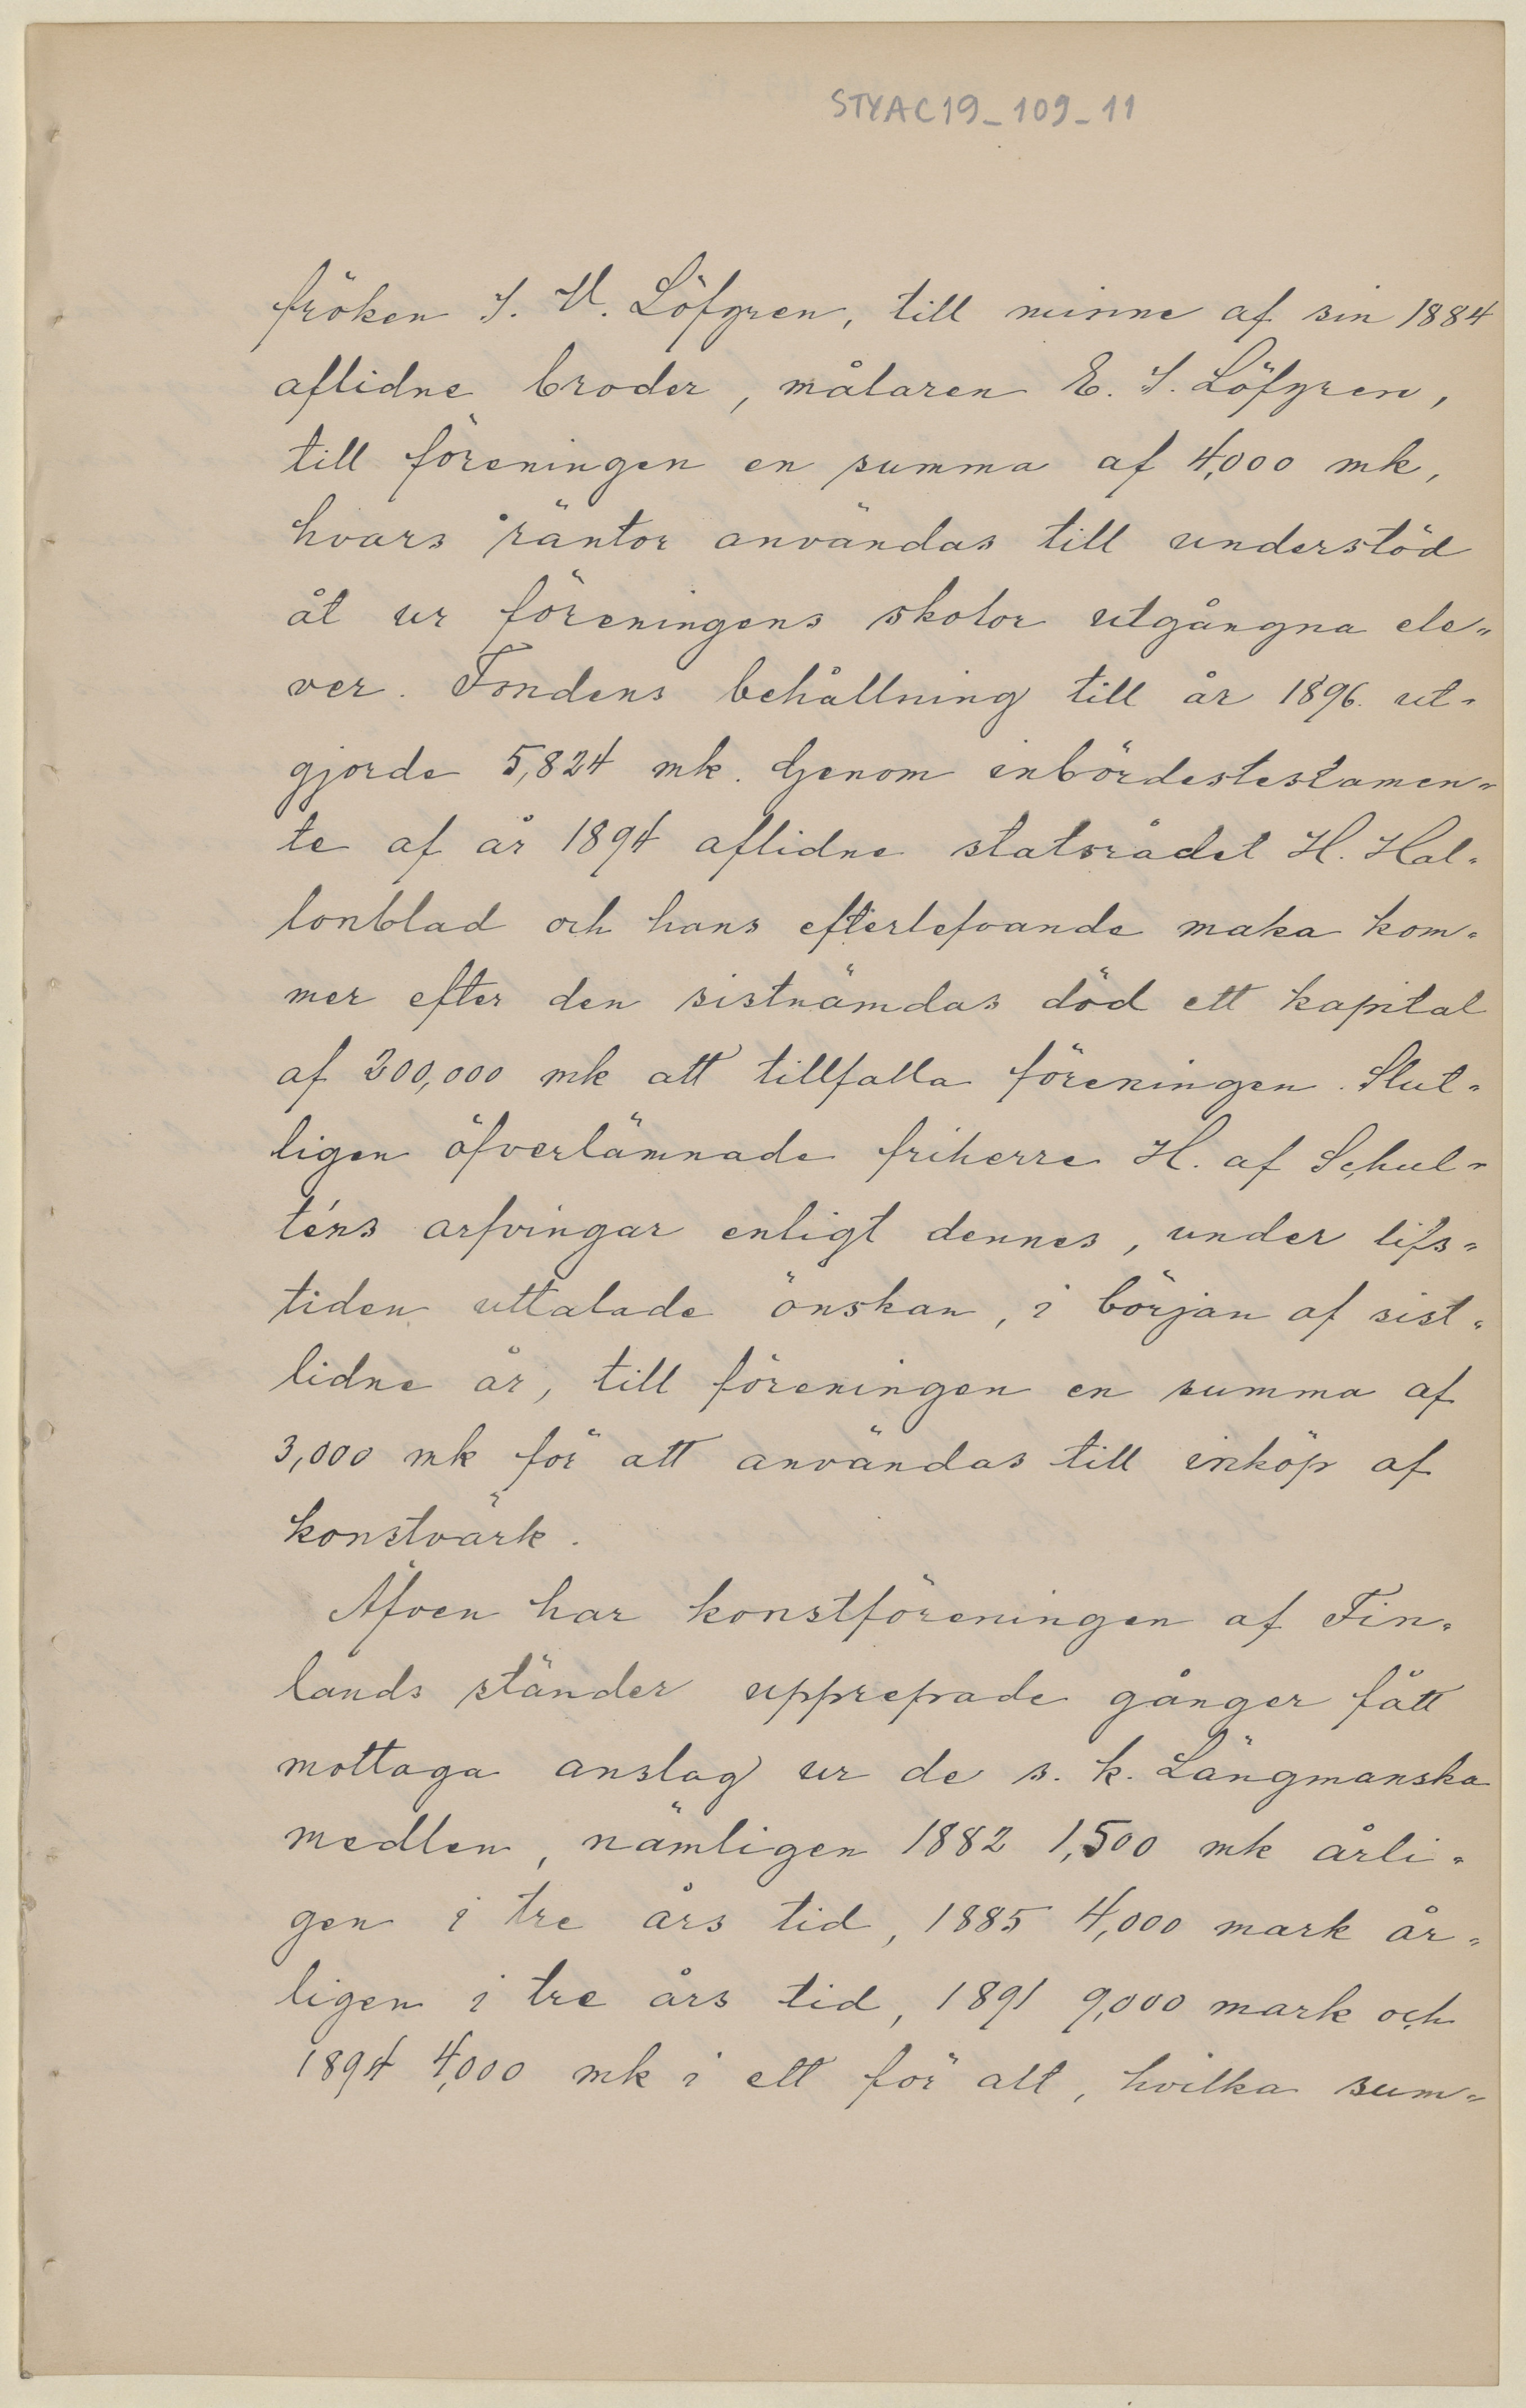 STYAC19_109_11
fröken S. V. Löfgren, till minne af sin 1884
aflidne broder, målaren E. J. Löfgren,
till föreningen en summa af 4,000 mk,
hvars räntor användas till understöd
åt ur föreningens skolor utgångna ele-
ver. Fondens behållning till år 1896. ut-
gjorde 5,824 mk. Genom inbördestestamen-
te af år 1894 aflidne statsrådet H. Hal-
lonblad och hans efterlefvande maka kom-
mer efter den sistnämdas död ett kapital
af 200,000 mk att tillfalla föreningen. Slut-
ligen öfverlämnade friherre H. af Schul-
téns arfvingar enligt dennes, under lifs-
tiden uttalade önskan, i början af sist-
lidne år, till föreningen en summa af
3,000 mk för att användas till inköp af
konstvärk.
Äfven har konstföreningen af Fin-
lands ständer upprepade gånger fått
mottaga anslag ur de s. k. Längmanska
medlen, nämligen 1882 1,500 mk årli-
gen i tre års tid, 1885 4,000 mark år-
ligen i tre års tid, 1891 9,000 mark och
1894 4,000 mk i ett för allt, hvilka sum-